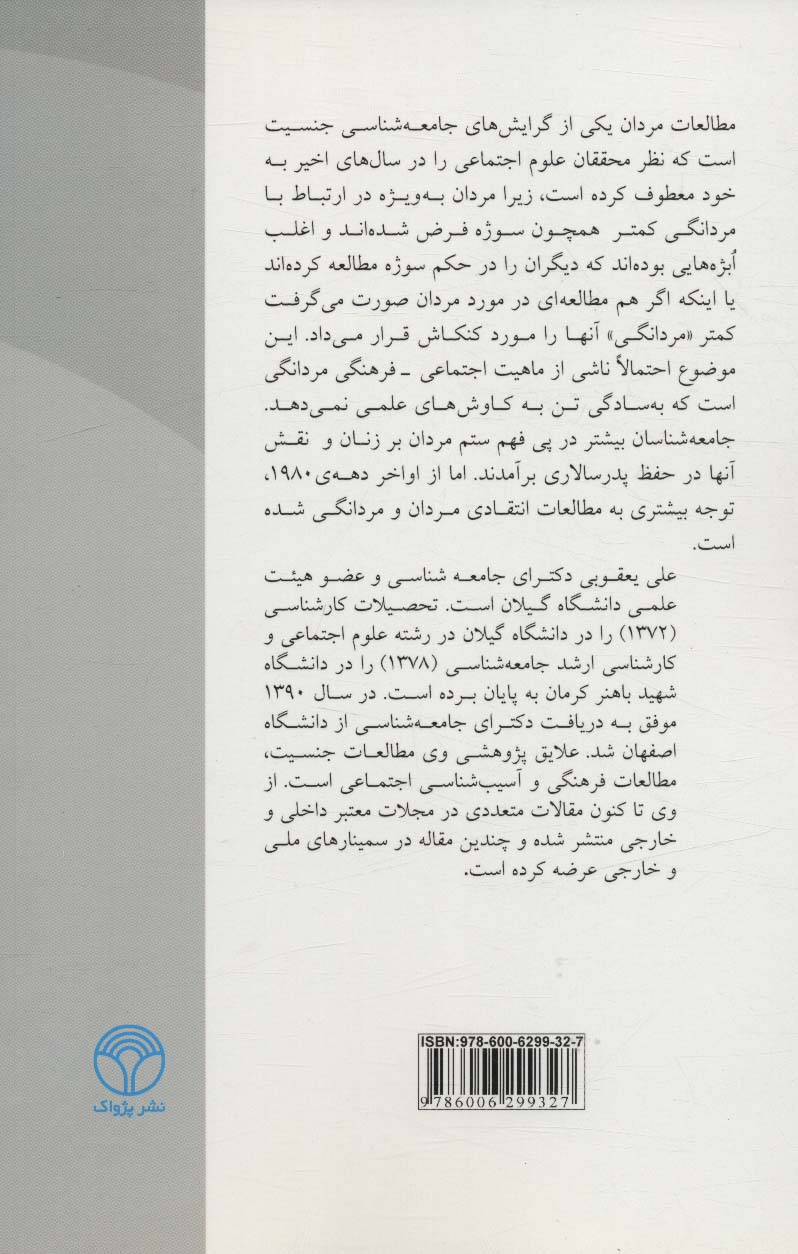 مطالعات مردان یکی از گرایش‌های جامعه‌شناسی جنسیت
است که نظر محققان علوم اجتماعی را در سال‌های اخیر به
خود معطوف کرده است، زیرا مردان به‌ویژه در ارتباط با
مردانگی کمتر همچون سوژه فرض شده‌اند و اغلب
اُبژه‌هایی بوده‌اند که دیگران را در حکم سوژه مطالعه کرده‌اند
یا اینکه اگر هم مطالعه‌ای در مورد مردان صورت می‌گرفت
کمتر «مردانگی» آنها را مورد کنکاش قرار می‌داد. این
موضوع احتمالاً ناشی از ماهیت اجتماعی ـ فرهنگی مردانگی
است که به‌سادگی تن به کاوش‌های علمی نمی‌دهد.
جامعه‌شناسان بیشتر در پی فهم ستم مردان بر زنان و نقش
آنها در حفظ پدرسالاری برآمدند. اما از اواخر دهه‌ی ۱۹۸۰،
توجه بیشتری به مطالعات انتقادی مردان و مردانگی شده
است.
علی یعقوبی دکترای جامعه شناسی و عضو هیئت
علمی دانشگاه گیلان است. تحصیلات کارشناسی
(۱۳۷۲) را در دانشگاه گیلان در رشته علوم اجتماعی و
کارشناسی ارشد جامعه‌شناسی (۱۳۷۸) را در دانشگاه
شهید باهنر کرمان به پایان برده است. در سال ۱۳۹۰
موفق به دریافت دکترای جامعه‌شناسی از دانشگاه
اصفهان شد. علایق پژوهشی وی مطالعات جنسیت،
مطالعات فرهنگی و آسیب‌شناسی اجتماعی است. از
وی تا کنون مقالات متعددی در مجلات معتبر داخلی و
خارجی منتشر شده و چندین مقاله در سمینارهای ملی و
و خارجی عرضه کرده است.
ISBN:978-600-6299-32-7
9 786006 299327
نشر پژواک